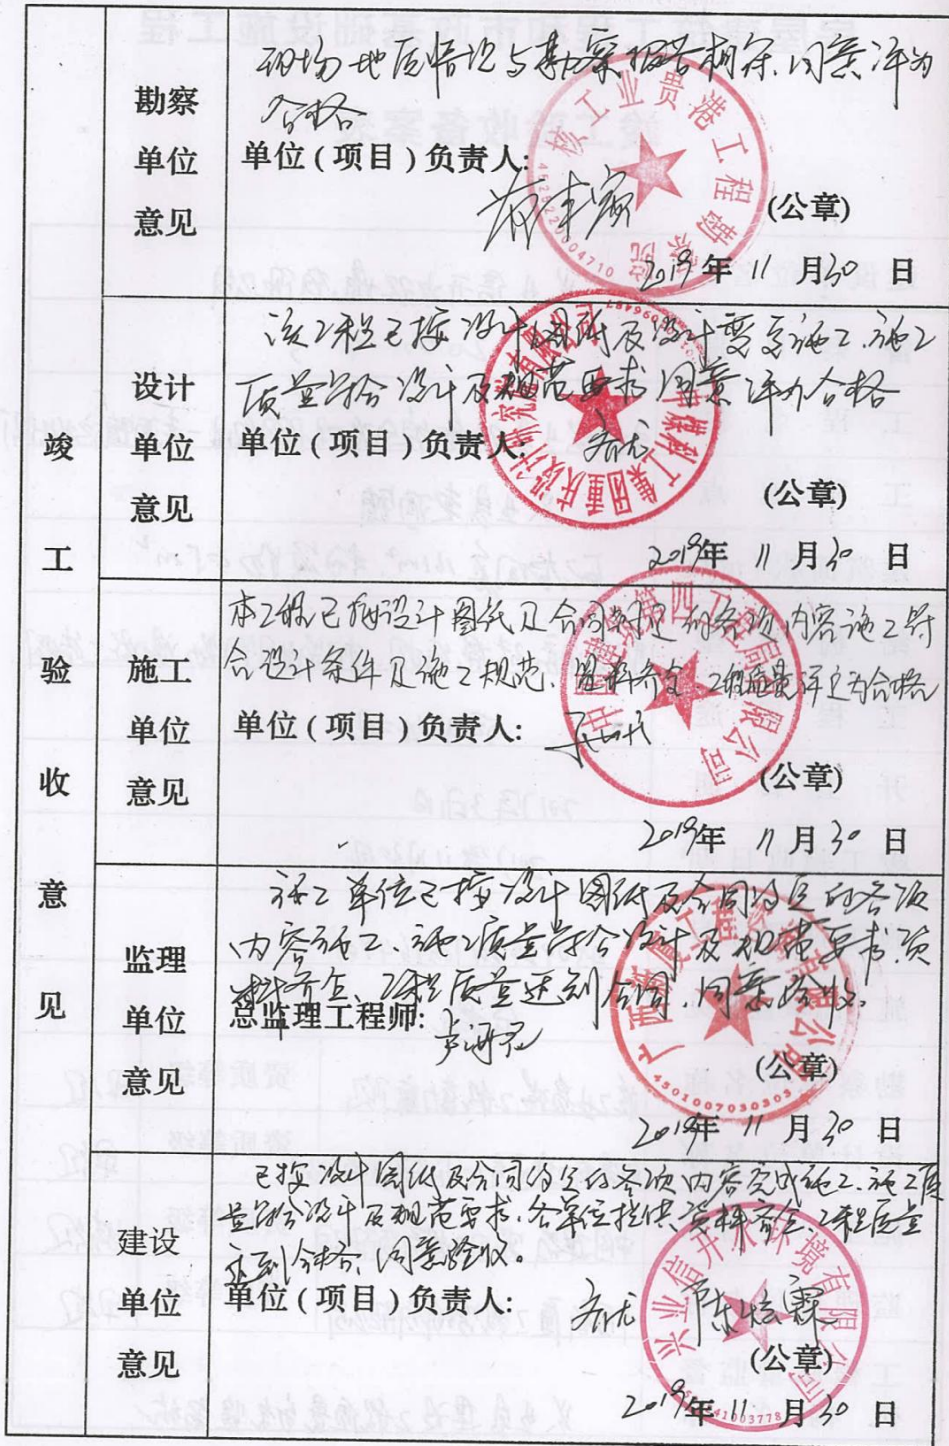 竣工验收意见
勘察单位意见
现场地质情况与勘察报告相符,同意评为
合格
单位(项目)负责人:
核工业贵港工程勘察院
(公章)
2019年11月30日
设计单位意见
该工程已按设计图纸及设计要求施工,施工
质量符合设计及规范要求 同意评为合格
单位(项目)负责人:
齐尤
中煤科工集团重庆设计研究院有限公司
(公章)
2019年11月30日
施工单位意见
本工程已按设计图纸及合同约定的各项内容施工,符
合设计条件及施工规范,资料齐全,工程质量评定为合格
单位(项目)负责人:
中国建筑第四工程局有限公司
(公章)
2019年11月30日
监理单位意见
施工单位已按设计图纸及合同约定的各项
内容施工、施工质量符合设计及规范要求,资
料齐全、工程质量达到合同,同意验收。
总监理工程师:
(公章)
4501007030303
2019年11月30日
建设单位意见
已按设计图纸及合同约定的各项内容完成施工,施工质
量符合设计及规范要求,各单位提供资料齐全,工程质量
达到合格,同意验收。
单位(项目)负责人:
齐尤
兴业信开水环境有限公司
(公章)
2019年11月30日